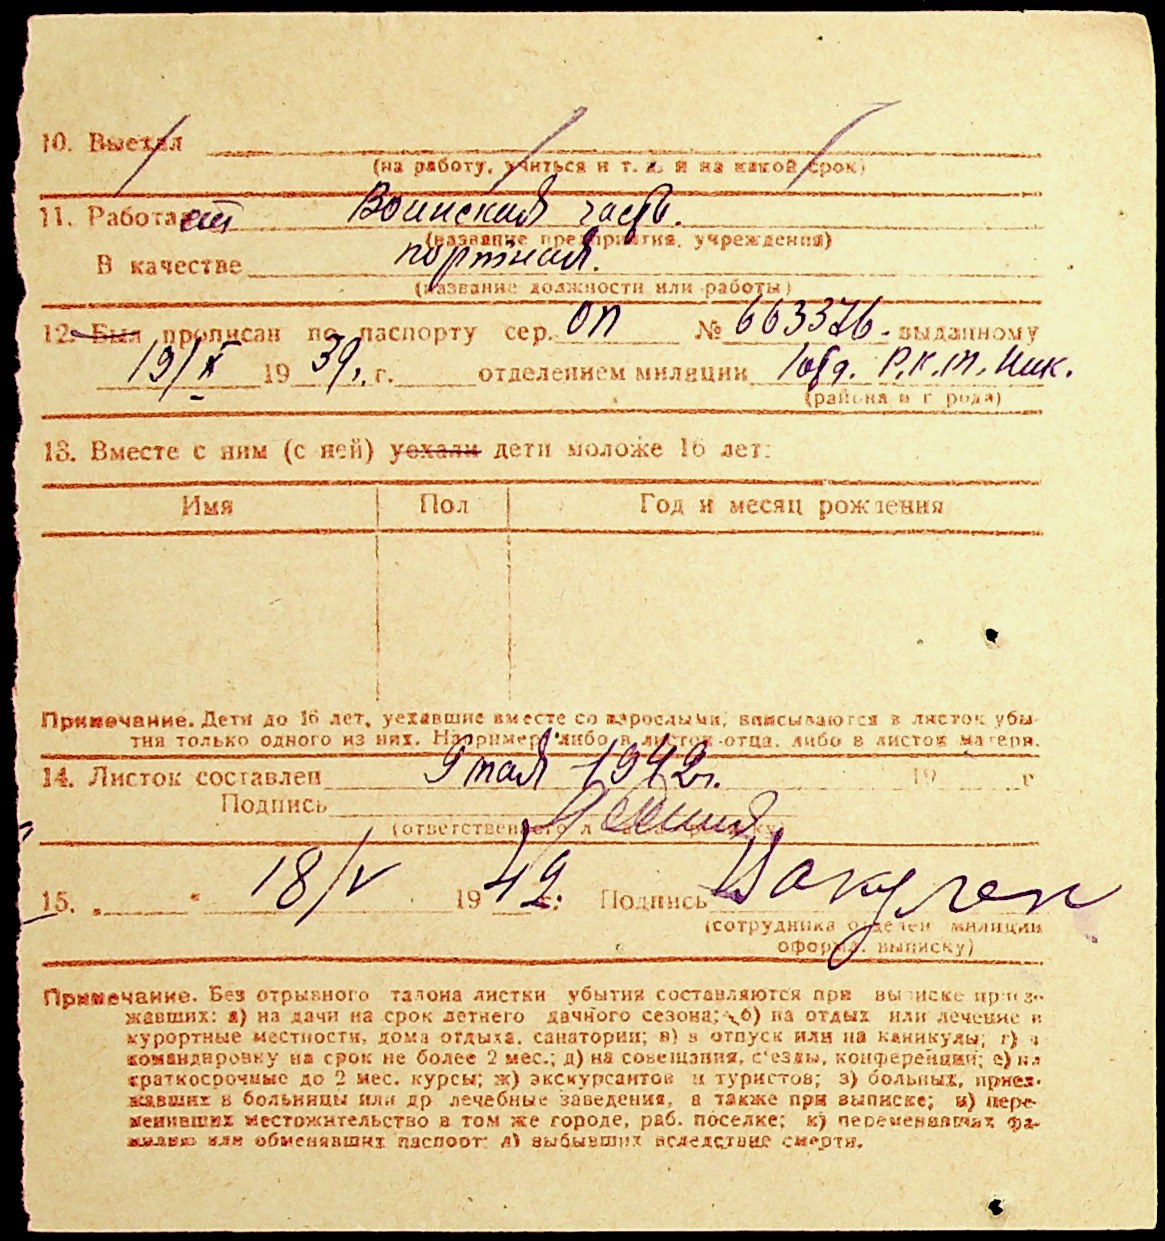 10. Выехал
(на работу, учиться и т. д. и на какой срок)
11. Работает Воинская часть.
(название предприятия, учреждения)
В качестве портная.
(название должности или работы)
12. Был прописан по паспорту сер. ОП № 663376. выданному
19/X 1939, г. отделением милиции 1 отд. Р.К.М. Ник.
(района и города)
13. Вместе с ним (с ней) уехали дети моложе 16 лет:
Имя Пол Год и месяц рождения
Примечание. Дети до 16 лет, уехавшие вместе со взрослыми, вписываются в листок убы-
тия только одного из них. Например либо в листок отца, либо в листок матери.
14. Листок составлен 9 мая 1942 г. 19 г
Подпись
(ответственного
15. „ “ 18/V 1942 г. Подпись
(сотрудника отделен милиции
оформ. выписку)
Примечание. Без отрывного талона листки убытия составляются при выписке приез-
жавших: а) на дачи на срок летнего дачного сезона; б) на отдых или лечение в
курортные местности, дома отдыха, санатории; в) в отпуск или на каникулы; г) в
командировку на срок не более 2 мес.; д) на совещания, с'езды, конференции; е) на
краткосрочные до 2 мес. курсы; ж) экскурсантов и туристов; з) больных, приез-
жавших в больницы или др лечебные заведения, а также при выписке; и) пере-
менивших местожительство в том же городе, раб. поселке; к) переменивших фа-
милию или обменявших паспорт; л) выбывших вследствие смерти.